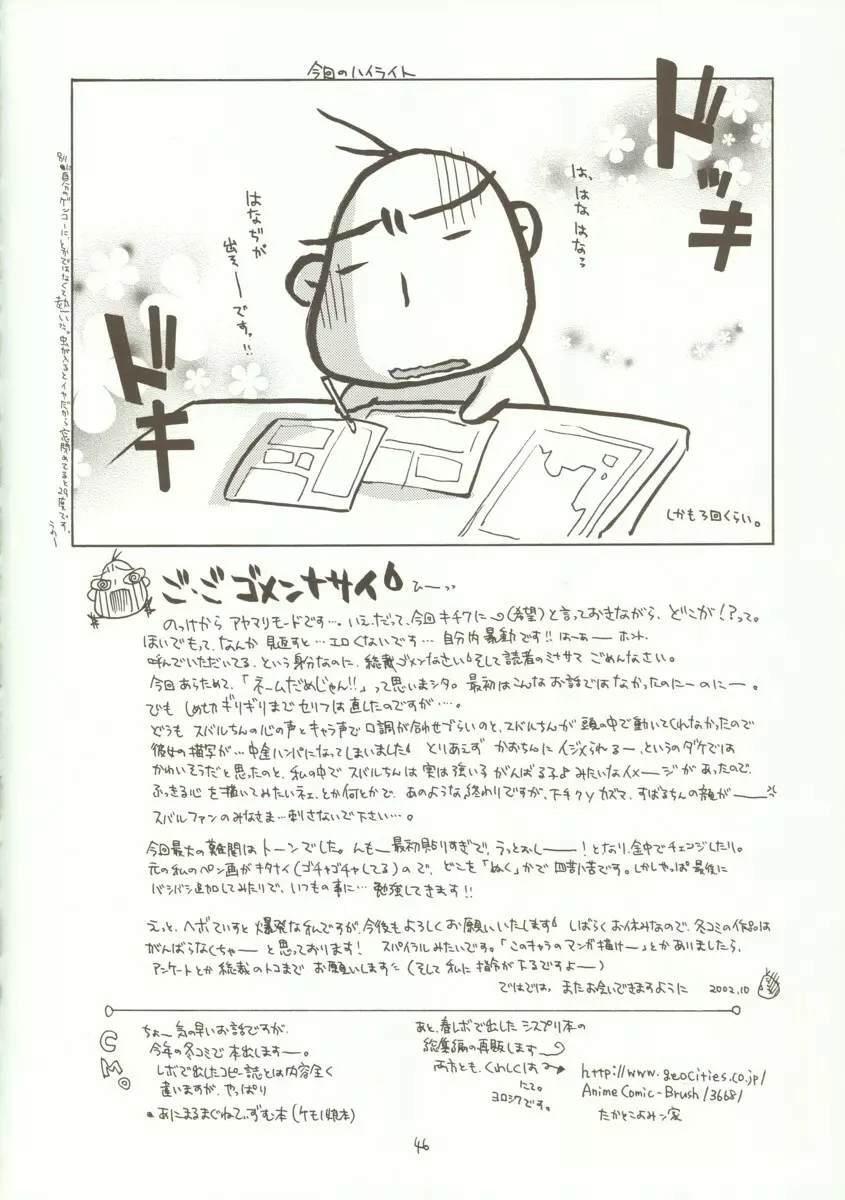 今回のハイライト
ドッキ
は、はなはなっ
はなぢが
出そーです。!!
ドキ
しかも3回くらい。
ご・ごゴメンナサイ
ひーっっ
のっけから アヤマリモードです…。いえ、だって、今回キチクに (希望)と言っておきながら、どこが!?って。
ほいでもって、なんか 見返すと… エロくないです… 自分内暴動です!! はーぁー ホント、
呼んでいただいてる、という身分なのに、総裁ゴメンなさい そして読者のミナサマ ごめんなさい。
今回あらためて、「ネームだめじゃん!!」って思いまシタ。最初はこんなお話ではなかったのにーのにー。
でも しめ切りギリギリまでセリフは直したのですが…。
どうも スバルちんの心の声とキャラ声で口調が合わせづらいのと、スバルちんが 頭の中で動いてくれなかったので
彼女の描写が… 中途ハンパになってしまいました とりあえず かおちんに イジメられるー、というのダケでは
かわいそうだと思ったのと、私の中で スバルちんは 実は強い子 がんばる子よ みたいなイメージがあったので、
ふっきる心 を描いてみたいネェ、とか何とかで、あのような終わりですが、
スバルファンのみなさま… 刺さないで下さい…。
今回最大の難関はトーンでした。んもー最初貼りすぎで、うっとおしーー!となり、途中でチェンジしたり。
元の私のペン画がキタナイ(ゴチャゴチャしてる)ので、どこを「ぬく」かで 四苦八苦です。しかしやっぱ最後に
バシバシ追加してみたりで、いつもの事に… 勉強してきます!!
えっと、ヘボていすと 爆発な私ですが、今後もよろしくお願いいたします しばらくお休みなので、冬コミの作品は
がんばらなくちゃー と思っております! スパイラルみたいです。「このキャラのマンガ描けー」とかありましたら、
アンケートとか 総裁のトコまで お願いします (そして 私に 指令が下るですよー)
ではでは、またお会いできますように 2002.10
CM。
ちょー気の早いお話ですが、
今年の冬コミで 本出しますー。
レボで出したコピー誌とは内容全く
違いますが、やっぱり
あにまるまぐねてぃずむ本(ケモノ娘本)
あと、春レボで出した シスプリ本の
総集編の再販します
両方とも、くわしくは→
http://www.geocities.co.jp/
AnimeComic-Brush/3668/
にて。
ヨロシクです。
たかとこよみン家
46